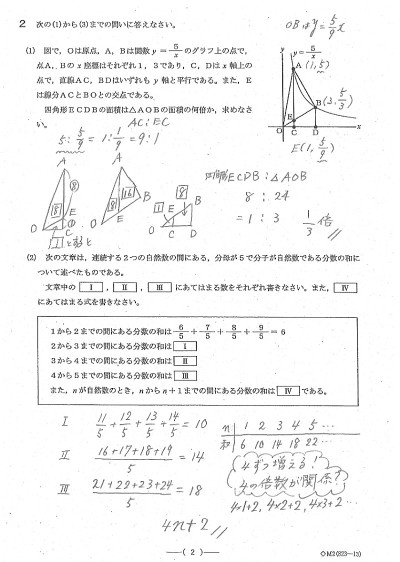 2 次の(1)から(3)までの問いに答えなさい。
(1) 図で，Oは原点，A，Bは関数 y = 5/x のグラフ上の点で，
点A，Bのx座標はそれぞれ1，3であり，C，Dはx軸上の
点で，直線AC，BDはいずれもy軸と平行である。また，E
は線分ACとBOとの交点である。
四角形ECDBの面積は△AOBの面積の何倍か，求めなさ
い。
OBは y = 5/9 x
y
y = 5/x
A
B (3, 5/3)
E
O C D x
E(1, 5/9)
AC : EC
5 : 5/9 = 1 : 1/9 = 9 : 1
A
8
O C D
1とすると
A
8
16
B
O
E
B
1
8
O C D
四角形ECDB : △AOB
8 : 24
= 1 : 3
1/3 倍
(2) 次の文章は，連続する2つの自然数の間にある，分母が5で分子が自然数である分数の和に
ついて述べたものである。
文章中の I ， II ， III にあてはまる数をそれぞれ書きなさい。また， IV
にあてはまる式を書きなさい。
1から2までの間にある分数の和は 6/5 + 7/5 + 8/5 + 9/5 = 6
2から3までの間にある分数の和は I
3から4までの間にある分数の和は II
4から5までの間にある分数の和は III
また，nが自然数のとき，nからn+1までの間にある分数の和は IV である。
I 11/5 + 12/5 + 13/5 + 14/5 = 10
II (16+17+18+19)/5 = 14
III (21+22+23+24)/5 = 18
4n+2
n 1 2 3 4 5 …
和 6 10 14 18 22 …
4ずつ増える!
4の倍数が関係?
4×1+2, 4×2+2, 4×3+2 …
—( 2 )—
◇M2(823—13)